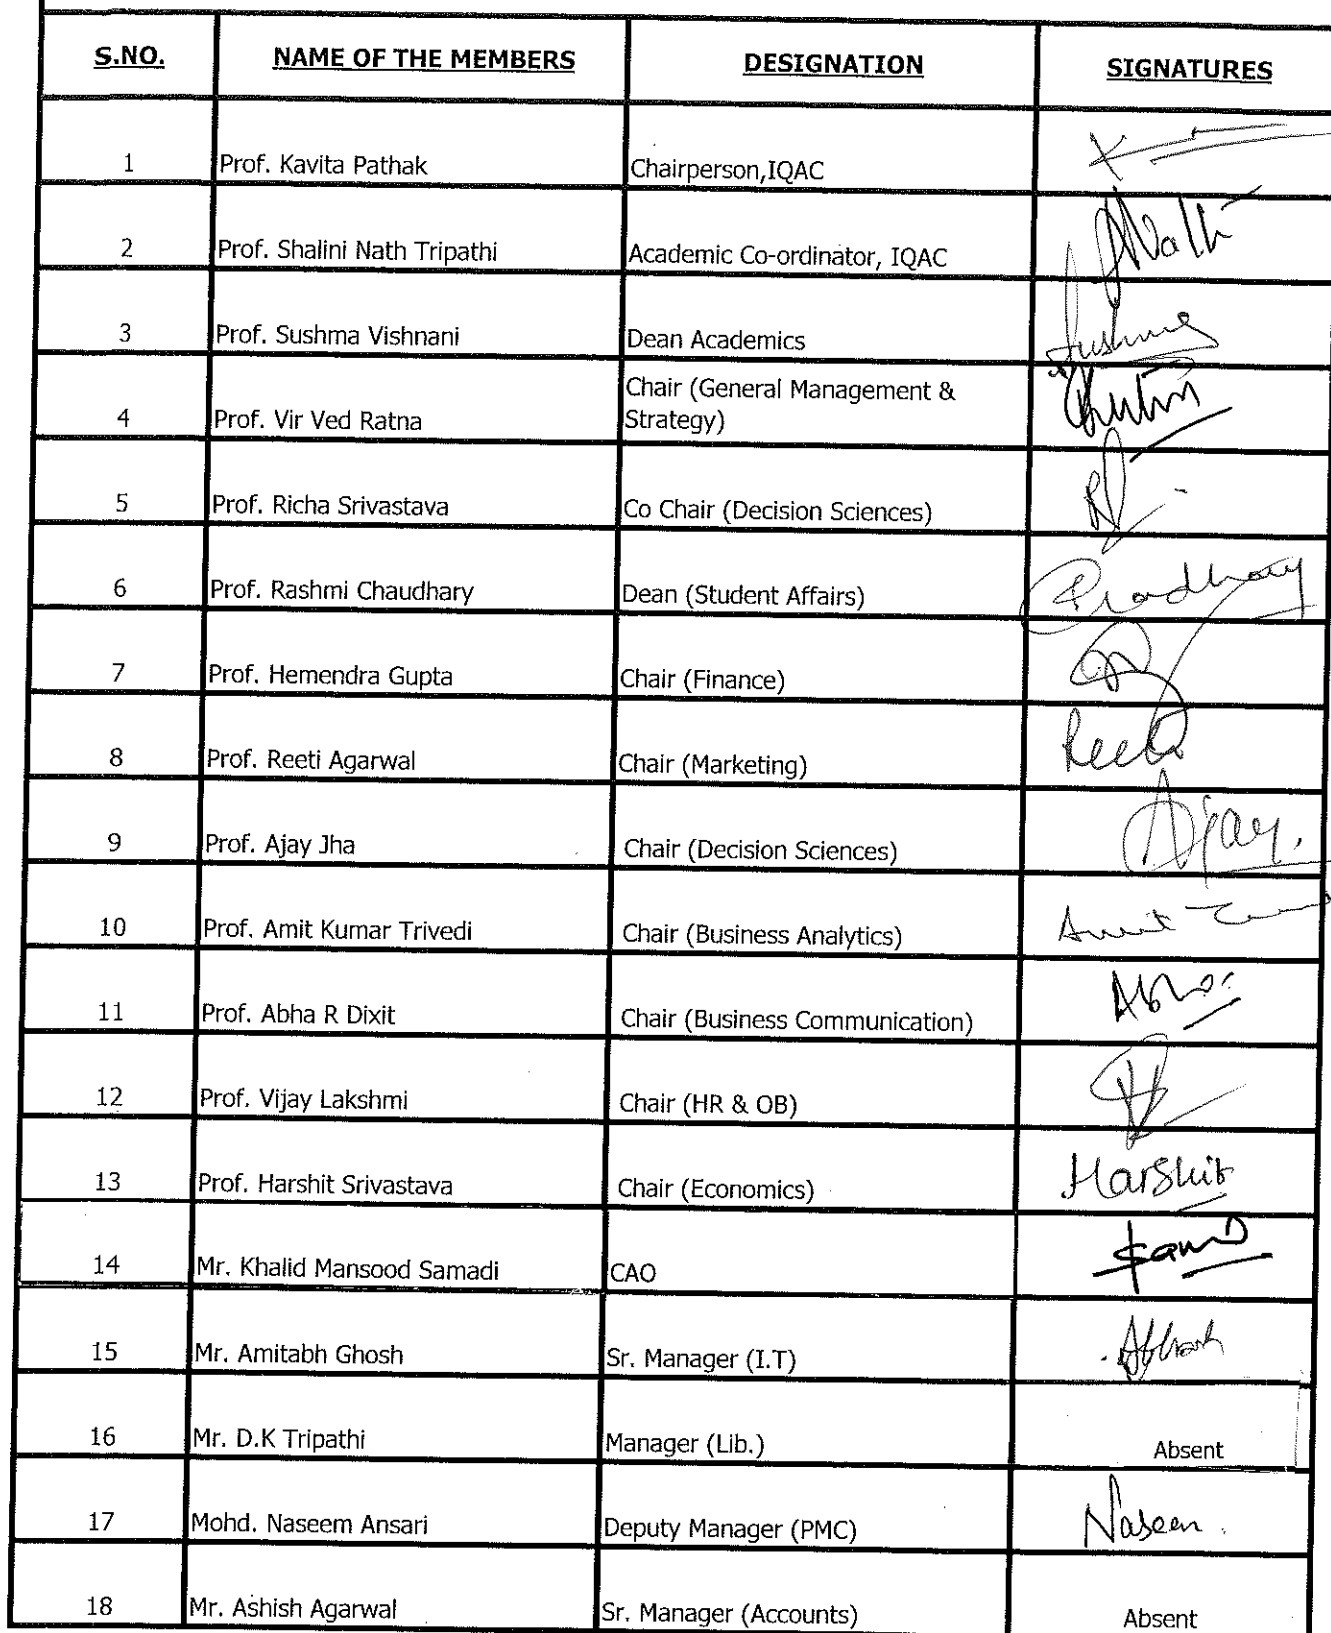 S.NO. NAME OF THE MEMBERS DESIGNATION SIGNATURES
1 Prof. Kavita Pathak Chairperson,IQAC
2 Prof. Shalini Nath Tripathi Academic Co-ordinator, IQAC
3 Prof. Sushma Vishnani Dean Academics Sushma
4 Prof. Vir Ved Ratna Chair (General Management &
Strategy)
5 Prof. Richa Srivastava Co Chair (Decision Sciences)
6 Prof. Rashmi Chaudhary Dean (Student Affairs)
7 Prof. Hemendra Gupta Chair (Finance)
8 Prof. Reeti Agarwal Chair (Marketing) Reeti
9 Prof. Ajay Jha Chair (Decision Sciences) Ajay.
10 Prof. Amit Kumar Trivedi Chair (Business Analytics) Amit
11 Prof. Abha R Dixit Chair (Business Communication) Abha
12 Prof. Vijay Lakshmi Chair (HR & OB)
13 Prof. Harshit Srivastava Chair (Economics) Harshit
14 Mr. Khalid Mansood Samadi CAO
15 Mr. Amitabh Ghosh Sr. Manager (I.T)
16 Mr. D.K Tripathi Manager (Lib.) Absent
17 Mohd. Naseem Ansari Deputy Manager (PMC) Naseem.
18 Mr. Ashish Agarwal Sr. Manager (Accounts) Absent